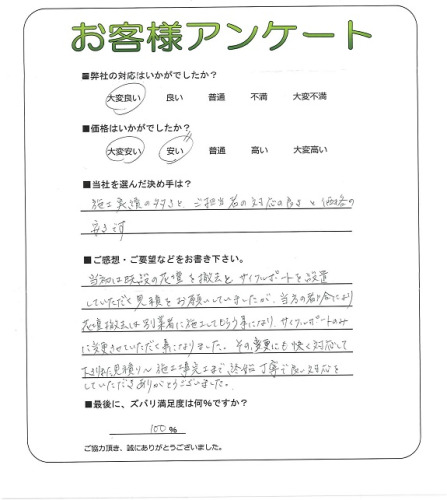 お客様アンケート
■弊社の対応はいかがでしたか?
大変良い 良い 普通 不満 大変不満
■価格はいかがでしたか?
大変安い 安い 普通 高い 大変高い
■当社を選んだ決め手は?
施工実績の多さと、ご担当者の対応の良さと価格の
安さです
■ご感想・ご要望などをお書き下さい。
当初は既設の花壇を撤去し サイクルポートを設置
していただく見積をお願いしていましたが、当方の都合により
花壇撤去は別業者に施工してもらう事になり、サイクルポートのみ
に変更させていただく事になりました。その変更にも快く対応して
下さり 見積り〜施工完工まで、終始丁寧で良い対応を
していただきありがとうございました。
■最後に、ズバリ満足度は何%ですか?
100 %
ご協力頂き、誠にありがとうございました。